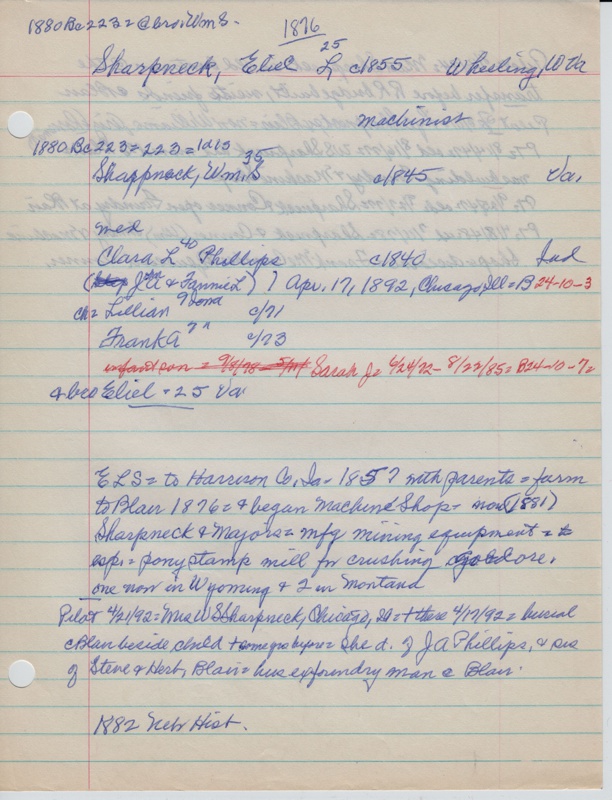 1880 Bc 223 = @ bro Wm S.
1876
Sharpneck, Eliel L 25 c1855 Wheeling, W Va
machinist
1880 Bc 223 = 223 =
Sharpneck, Wm. S 35 c1845 Va,
med
Clara L 40 Phillips c1840 Ind
( J A & Fannie L ) 7 Apr. 17, 1892, Chicago, Ill = B 24-10-3
ch = Lillian 9 Iowa c/71
Frank A 7 " c/73
infant son = 9/8/78 = Sarah J = 6/24/72 - 8/23/85 = B24-10-7 =
& bro Eliel = 25 Va
E L S = to Harrison Co, Ia - 1857 with parents = farm
to Blair 1876 = & began Machine Shop = now (1881)
Sharpneck & Majors = mfg mining equipment =
esp. = pony stamp mill for crushing gold ore,
one now in Wyoming & 2 in Montana
Pilot 4/21/92 = Mrs W S Sharpneck, Chicago, Ill = + there 4/17/92 = burial
@ Blair beside child = She d. of J A Phillips, & sis
of Steve & Herb, Blair = hus ex foundry man @ Blair.
1882 Neb Hist.